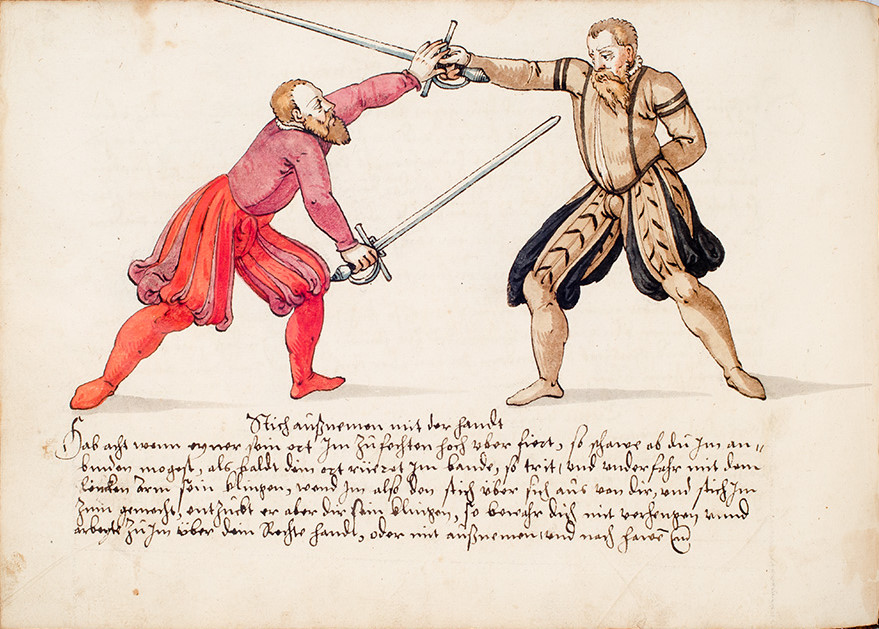 Stich außnemen mit der handt
Hab acht wenn eyner sein ort Im zufechten hoch vber fiert, so schawe ob du Im an=
binden mogest, als paldt dein ort rüeret Im bande, so trit, vnd vnderfahr mit dem
Lincken Arm sein klingen, wend Im also den stich vber sich aus von dir, vnd stich Im
Zum gemecht, entzuckt er aber dir sein klingen, so bewahr dich mit verhengen vnnd
arbeyte zu Im vber dein Rechte handt, oder mit außnemen, vnd nach hawen